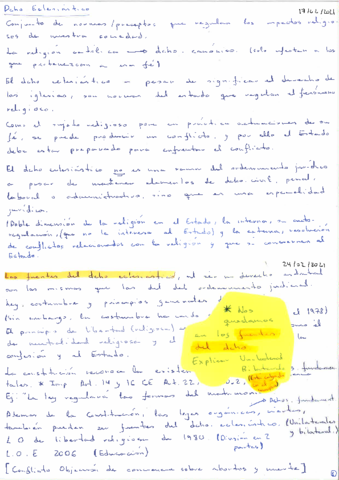 Dcho Eclesiástico
17/02/2021
Conjunto de normas/preceptos que regulan los aspectos religio-
sos de nuestra sociedad.
La religión católica como dcho. canónico. (solo afectan a los
que pertenezcan a una fé)
El dcho eclesiástico a pesar de significar el derecho de
las iglesias, son normas del estado que regulan el fenómeno
religioso.
Como el sujeto religioso pone en práctica actuaciones de su
fé, se puede producir un conflicto, y por ello el Estado
debe estar preparado para enfrentar el conflicto.
El dcho eclesiástico no es una rama del ordenamiento jurídico
a pesar de mantener elementos de dcho civil, penal,
laboral o administrativo, sino que es una especialidad
jurídica.
(Doble dimensión de la religión en el Estado, la interna, su auto-
regulación, (que no le interesa al Estado) y la externa, resolución
de conflictos relacionados con la religión y que sí conciernen al
Estado.
24/02/2021
Las fuentes del dcho eclesiástico, al ser un derecho
son las mismas que las del ordenamiento
ley, costumbre y principios generales
(Sin embargo, la costumbre ha el 1978)
El principio de libertad religiosa como el
de neutralidad religiosa y el
confesión y el Estado.
* Nos
quedamos
en las fuentes
del dcho.
Explicar Unilateral
Bilaterales
La constitución reconoce la fundamen-
tales. * Imp Art. 14 y 16 CE Art. 22,
Ej: "La ley regulará las formas del matrimonio
Dchos. fundamental
Además de la Constitución, las leyes orgánicas,
también pueden ser fuentes del dcho. eclesiástico. (Unilaterales
y bilateral)
L.O de libertad religiosa de 1980 (Division en 2
partes)
L.O.E 2006 (Educación)
[Conflicto Objeción de conciencia sobre abortos y muerte]